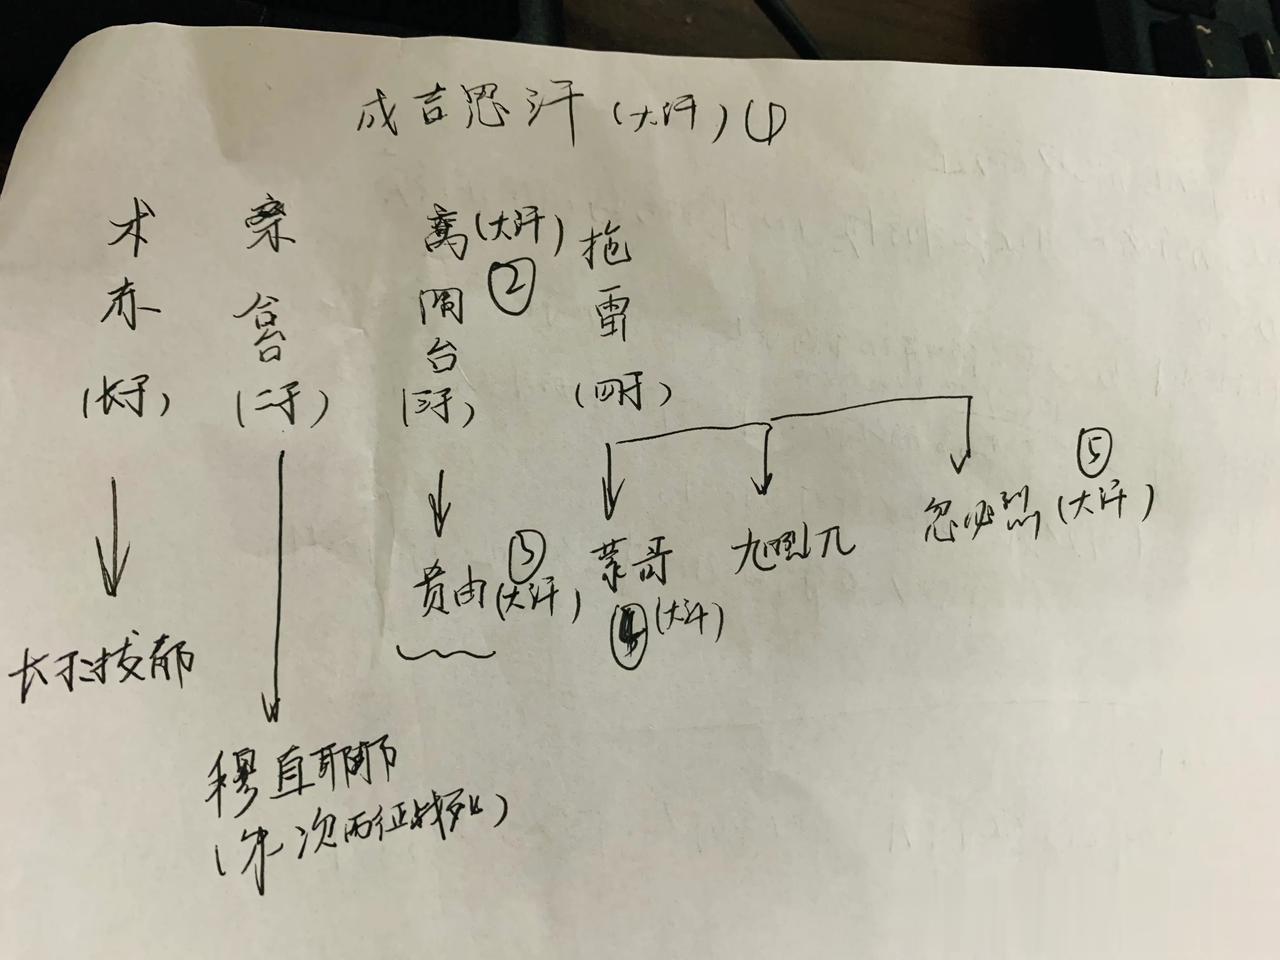 成吉思汗（大汗）①
术赤（长子）
察合台（二子）
窝阔台（三子）
（大汗）②
拖雷（四子）
长子拔都
穆直耶耶
（第一次西征战死）
贵由（大汗）③
蒙哥（大汗）④
旭烈兀
忽必烈（大汗）⑤